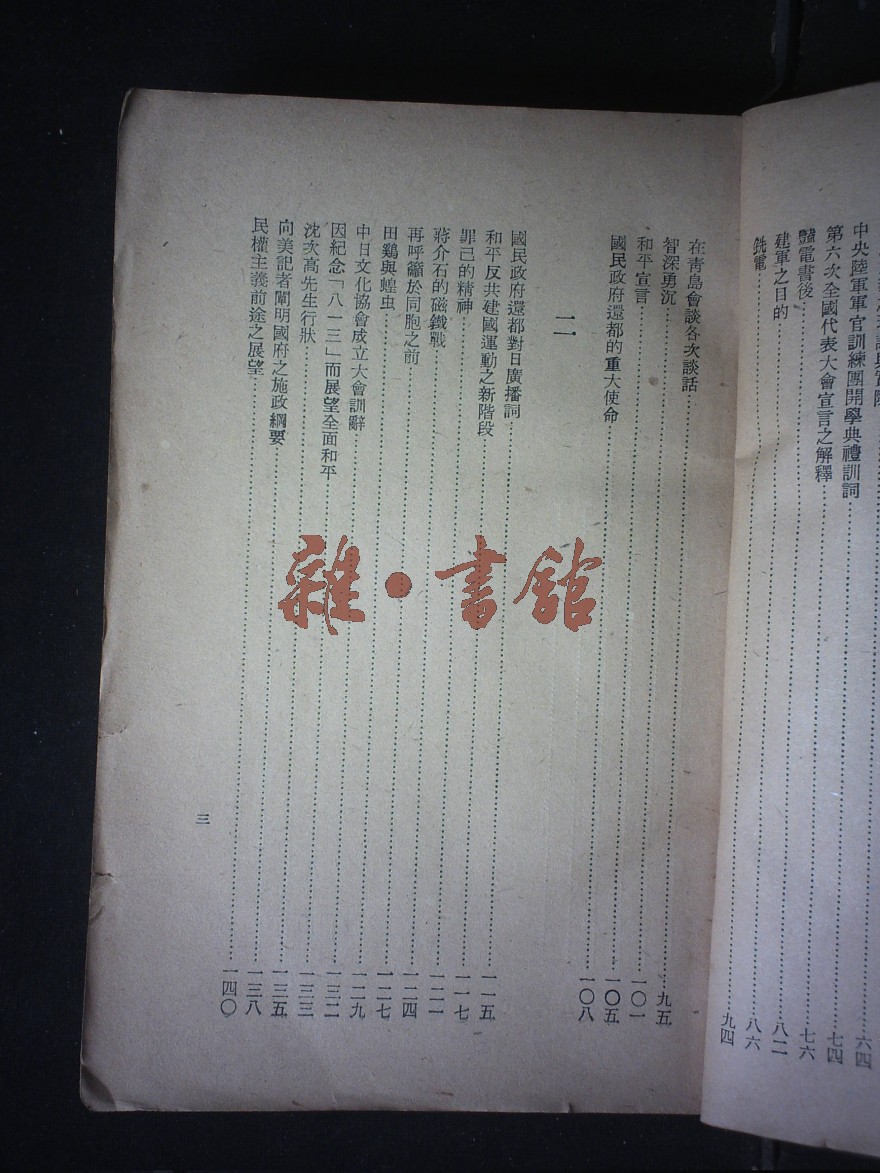 六四
中央陸軍軍官訓練團開學典禮訓詞……七四
第六次全國代表大會宣言之解釋……七六
豔電書後……八二
建軍之目的……八六
銑電……九四
在靑島會談各次談話……九五
智深勇沉……一〇一
和平宣言……一〇五
國民政府還都的重大使命……一〇八
二
國民政府還都對日廣播詞……一一五
和平反共建國運動之新階段……一一七
罪己的精神……一二一
蔣介石的磁鐵戰……一二四
再呼籲於同胞之前……一二七
田鷄與蝗虫……一二九
中日文化協會成立大會訓辭……一三二
因紀念「八一三」而展望全面和平……一三三
沈次高先生行狀……一三五
向美記者闡明國府之施政綱要……一三八
民權主義前途之展望……一四〇
三
雜·書館